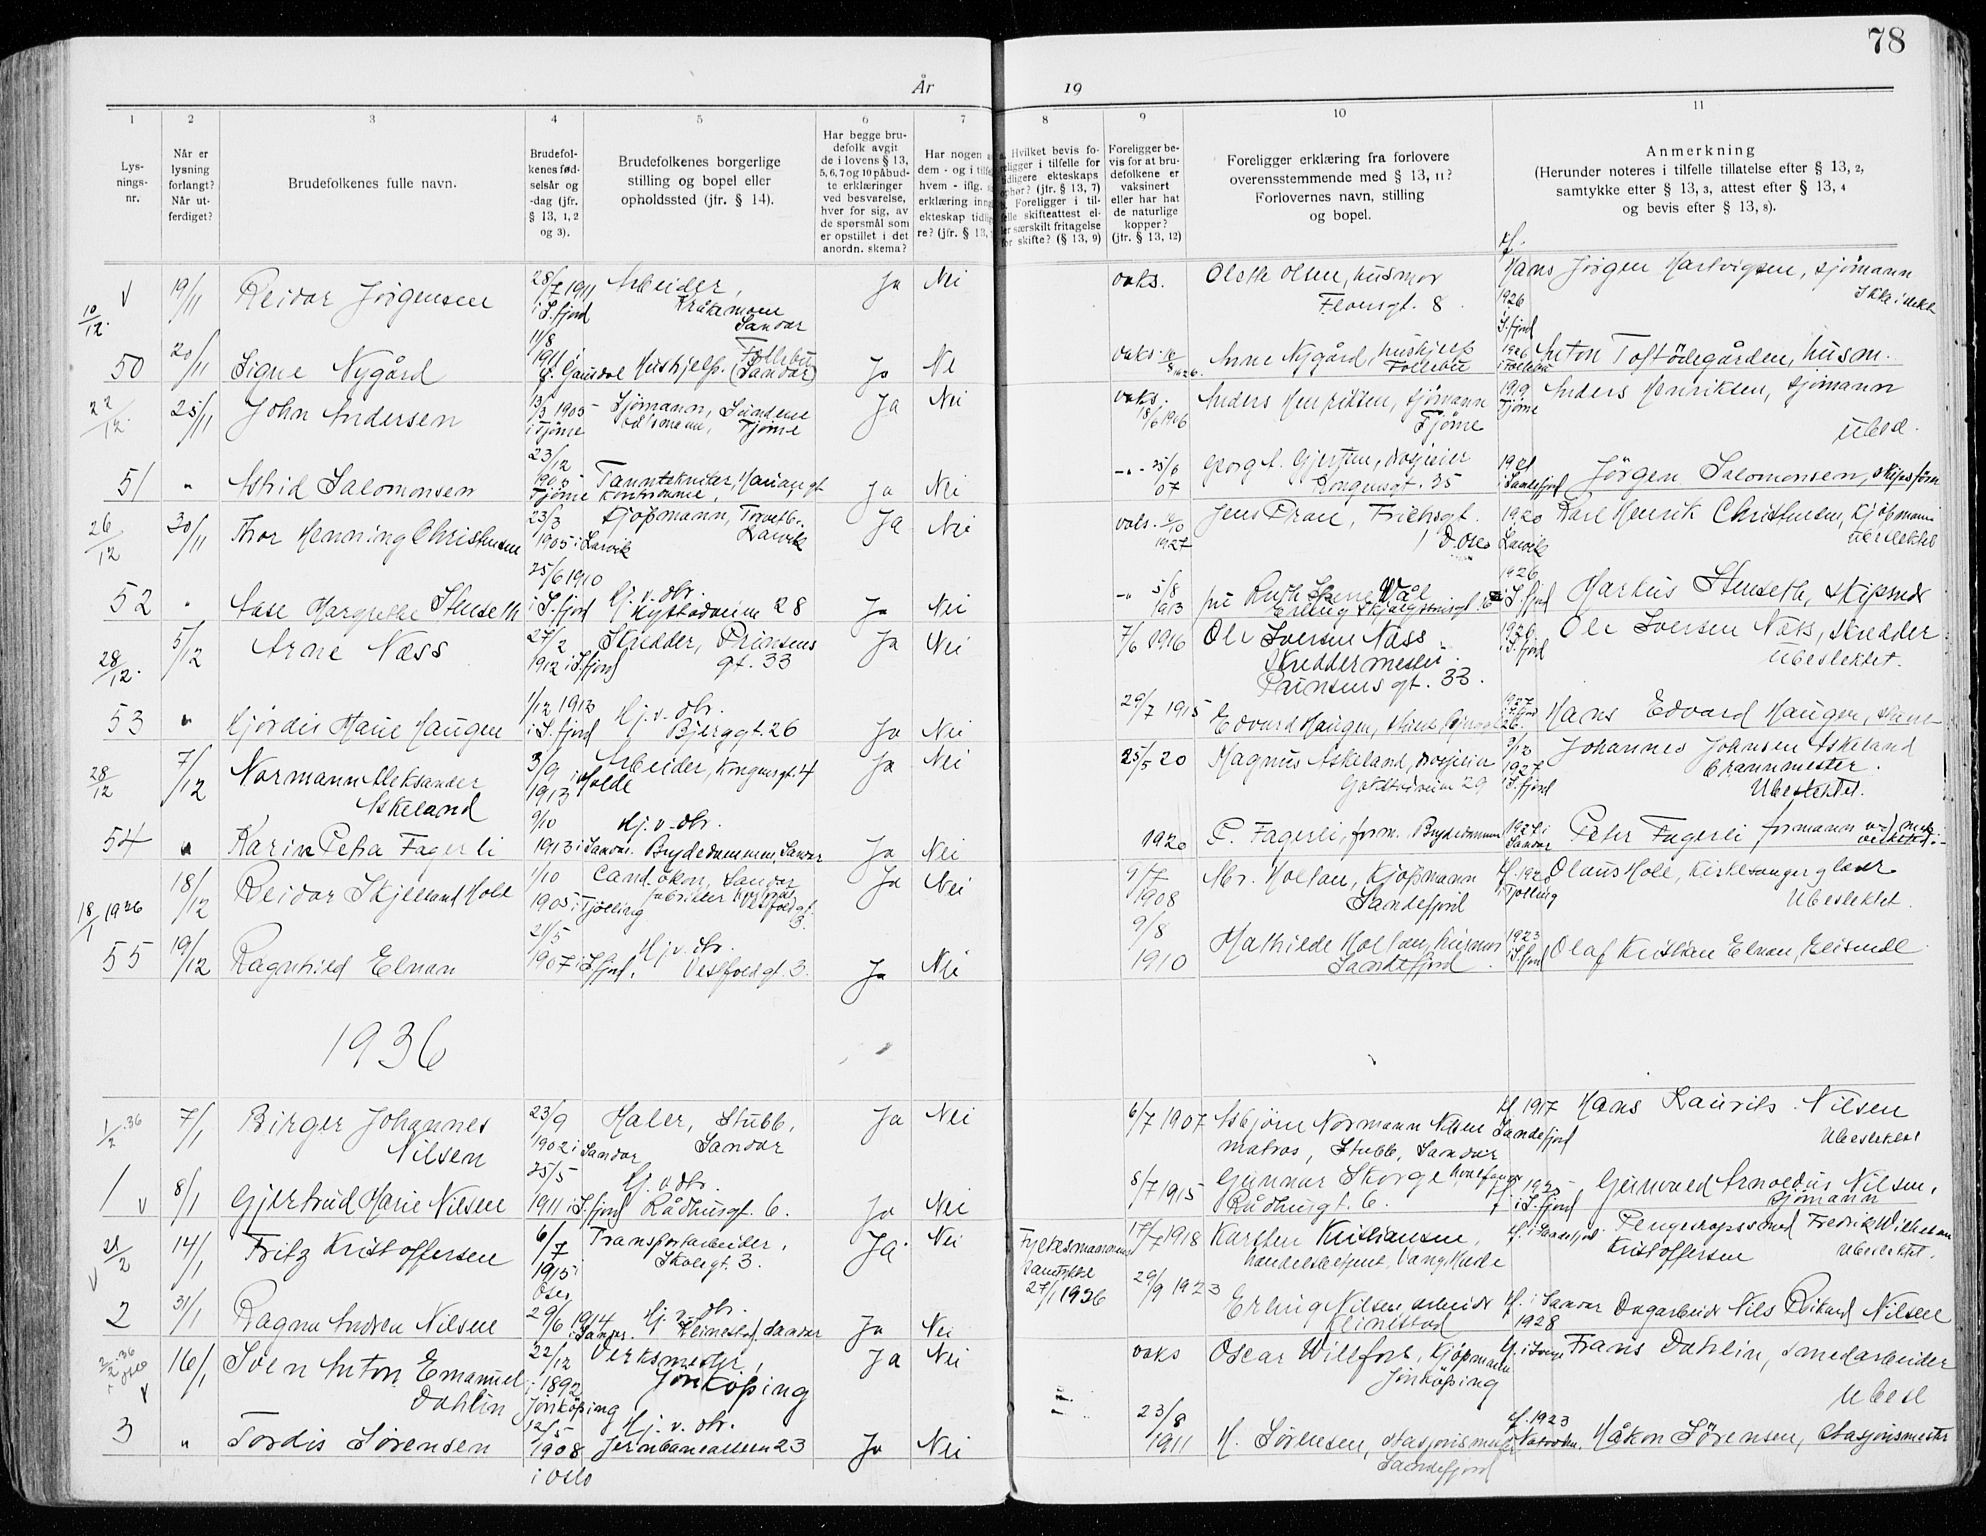 78
År 19
1 2 3 4 5 6 7 8 9 10 11
Lys-
nings-
nr.
Når er
lysning
forlangt?
Når ut-
ferdiget?
Brudefolkenes fulle navn.
Brudefol-
kenes fød-
selsår og
-dag (jfr.
§ 13, 1, 2
og 3).
Brudefolkenes borgerlige
stilling og bopel eller
opholdssted (jfr. § 14).
Har begge bru-
defolk avgit
de i lovens § 13,
5, 6, 7 og 10 påbud-
te erklæringer
ved besvarelse,
hver for sig, av
de spørsmål som
er opstillet i det
anordn. skema?
Har nogen a
dem - og i tilfe
hvem - iflg.
erklæring inng
ekteskap tidlig
re? (jfr. § 13,
Hvilket bevis fo-
religger i tilfelle for
tidligere ekteskaps
ophør? (jfr. § 13, 7)
Foreligger i til-
felle skifteattest el-
ler særskilt fritagelse
for skifte? (§ 13, 9)
Foreligger be-
vis for at bru-
defolkene er
vaksinert
eller har hat
de naturlige
kopper?
(jfr. § 13, 12)
Foreligger erklæring fra forlovere
overensstemmende med § 13, 11?
Forlovernes navn, stilling
og bopel.
Anmerkning
(Herunder noteres i tilfelle tillatelse efter § 13, 2,
samtykke efter § 13, 3, attest efter § 13, 4
og bevis efter § 13, 8).
10/12. 19/11 Reidar Jørgensen 28/7 1911 i S.fjord Arbeider, Sandar Ja Nei vaks. Olsen, husmor Hans Jørgen Hartvigsen, sjömann
8. 1926 S.fjord
50 20/11 Signe Nygård 11/8 1911 Gausdal Hushjelp. Follebu (Sandar) Ja Nei vaks. Anne Nygård, hushjelp Follebu 1926 i Follebu Anton Toftödegården, husm.
22/12. 25/11 John Andersen 1905 i Tjöme Sjömann, Tjöme Ja Nei vaks. 18/6 1906 Anders Henriksen, sjömann Tjöme 1919 Tjöme Anders Henriksen, sjömann
Ubesl.
51 " Astrid Salomonsen 23/12 Tjöme Ja Nei -"- 07 Georg A. Gjertsen, Kongensgt. 35 Sandefjord Jörgen Salomonsen, skipsförer
26/12 30/11 Thor Henning Christensen 23/3 1905 i Larvik Kjöpmann, Larvik Ja Nei vaks. 1927 Oslo 1920 Larvik Karl Henrik Christensen, kjöpmann
52 " Aase Margrethe Stenseth 25/6 1910 i S.fjord Hj. v. dtr. 28 Ja Nei -" 5/8 1913 1926 i S.fjord Markus Stenseth, skipsred
28/12. 5/12 Arne Næss 27/2 1912 i S.fjord Skredder, Prinsens gt. 33 Ja Nei 7/6 1916 Ole Iversen Næss Skreddermester. Prinsens gt. 33. i S.fjord Ole Iversen Næss, skredder
Ubeslektet.
53 " Hjördis Marie Haugen 1/12 1913 i S.fjord Hj. v. dtr. Bjerggt. 26 Ja Nei 29/7 1915 Edvard Haugen, 26. Hans Edvard Haugen,
28/12 7/12 Normann Aleksander Askeland 3/9 1913 i Molde Arbeider, Kongensgt. 4 Ja Nei 25/5 20 Magnus Askeland, 29 1927 i S.fjord Johannes Johansen Askeland brannmester.
Ubeslektet.
54 " Karin Petra Fagerli 9/10 1913 i Sandar. Hj. v. dtr. Bryde dammen, Sandar Ja Nei 1920 P. Fagerli, form. Brydedammen Sandar Peter Fagerli formann ved mek. verksted.
18/1 1936 18/12 Reidar Skjelland Hole 1/10 1905 i Tjölling Cand. økon, Sandar Ja Nei 9/7 1908 Holtan, kjöpmann Sandefjord Tjölling Olaus Hole, Kirkesanger
Ubeslektet.
55 19/12 Ragnhild Elnan 21/5 1907 i S.fjord. Hj. v. dtr. Vestfold gt. 3. Ja Nei 9/8 1910 Mathilde Holtan, husmor Sandefjord 1923 i S.fjord Olaf Kristian Elnan,
1936
1/2.36 7/1 Birger Johannes Nilsen 23/9 1902 i Sandar Maler, Stubb, Sandar Ja Nei 6/7 1907 Asbjörn Normann Nilsen matros, Stubb, Sandar 1917 Sandefjord Hans Laurits Nilsen
Ubeslektet
1 8/1 Gjertrud Marie Nilsen 25/5 1911 i S.fjord Hj. v. dtr. Rådhusgt. 6. Ja Nei 8/7 1915 Gunnar Skorge, hvalfanger Rådhusgt. 6. i S.fjord Gunvald Arnoldus Nilsen, sjömann
21/2 14/1 Fritz Kristoffersen 6/7 1915 i Oslo Transportarbeider, Skolegt. 3. Ja Nei Fylkesmannens samtykke 27/1 1936 17/7 1918 Karsten Kristiansen, handelsbetjent, Kristoffersen
Ubeslektet.
2 31/1 Ragna Andrea Nilsen 29/6 1914 i Sandar. Hj. v. dtr. Klinestad, Sandar Ja Nei 29/9 1923 Erling Nilsen, arbeider Klinestad i Sandar 1928 Dagarbeider Nils Rikard Nilsen
2/2.36 i Oslo 16/1 Sven Anton Emanuel Dahlin 22/12 i 1892 Jönköping Verksmester, Jönköping Ja Nei vaks Oscar Willfort, kjöpmann Jönköping Frans Dahlin, smedarbeider
Ubesl
3 " Tordis Sörensen 12/5 1908 i Oslo Hj. v. dtr. Jernbanealleen 23 Ja Nei 23/8 1911 H. Sörensen, stasjonsmester Sandefjord 1923 Håkon Sörensen, stasjonsmester